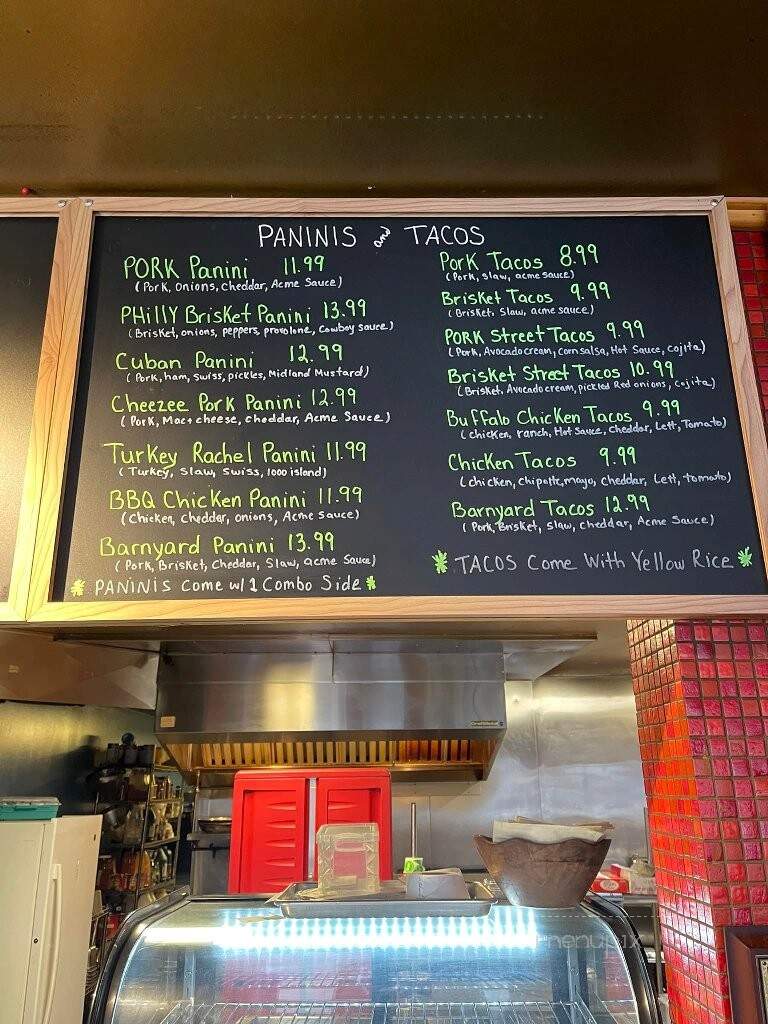 PANINIS and TACOS
PORK Panini 11.99
(Pork, Onions, Cheddar, Acme Sauce)
PHillY Brisket Panini 13.99
(Brisket, onions, peppers, provolone, Cowboy sauce)
Cuban Panini 12.99
(Pork, ham, swiss, pickles, Midland Mustard)
Cheezee Pork Panini 12.99
(Pork, Mac+cheese, cheddar, Acme Sauce)
Turkey Rachel Panini 11.99
(Turkey, Slaw, Swiss, 1000 island)
BBQ Chicken Panini 11.99
(Chicken, Cheddar, onions, Acme Sauce)
Barnyard Panini 13.99
(Pork, Brisket, Cheddar, Slaw, acme Sauce)
PANINIS Come w/1 Combo Side
Pork Tacos 8.99
(Pork, slaw, acme sauce)
Brisket Tacos 9.99
(Brisket, slaw, acme sauce)
PORK Street Tacos 9.99
(Pork, Avocado cream, corn salsa, Hot Sauce, cojita)
Brisket Street Tacos 10.99
(Brisket, Avocado cream, pickled Red onions, cojita)
Buffalo Chicken Tacos 9.99
(chicken, ranch, Hot Sauce, Cheddar, Lett, Tomato)
Chicken Tacos 9.99
(chicken, chipotle, mayo, Cheddar, Lett, tomato)
Barnyard Tacos 12.99
(Pork, Brisket, slaw, Cheddar, Acme Sauce)
TACOS Come With Yellow Rice
menupix